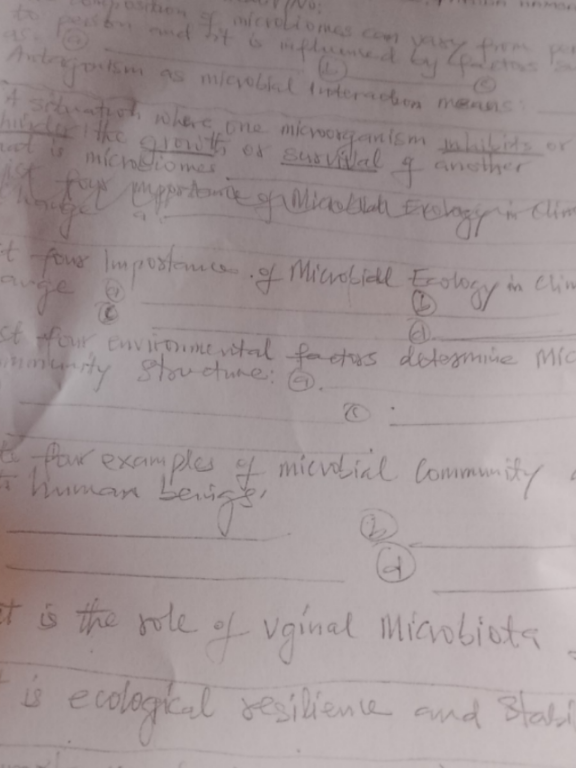 composition of microbiomes can vary from per
to person and it is influenced by factors su
as: (a) (b) (c)
Antagonism as microbial Interaction means:
A situation where one microorganism inhibits or
the growth or survival of another
is microbiomes
four importance of Microbial Ecology in Clim
a.
four Importance of Microbiall Ecology in Clim
(a) (b)
(c) (d)
four environmental factors determine Mic
Structure: (a)
(c) :
four examples of microbial Community
human beings,
(b)
(d)
is the role of vginal Microbiota
is ecological resilience and Stabi